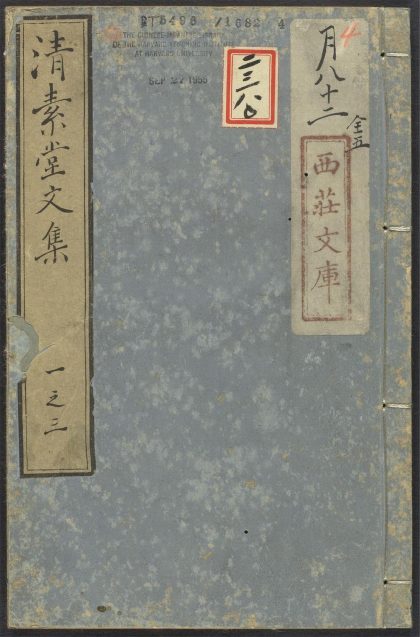 PT5498 /1682 4
THE CHINESE-JAPANESE LIBRARY
OF THE HARVARD-YENCHING INSTITUTE
AT HARVARD UNIVERSITY
SEP 27 1955
4
月八十二
全五
西莊文庫
二三八
清素堂文集
一之三